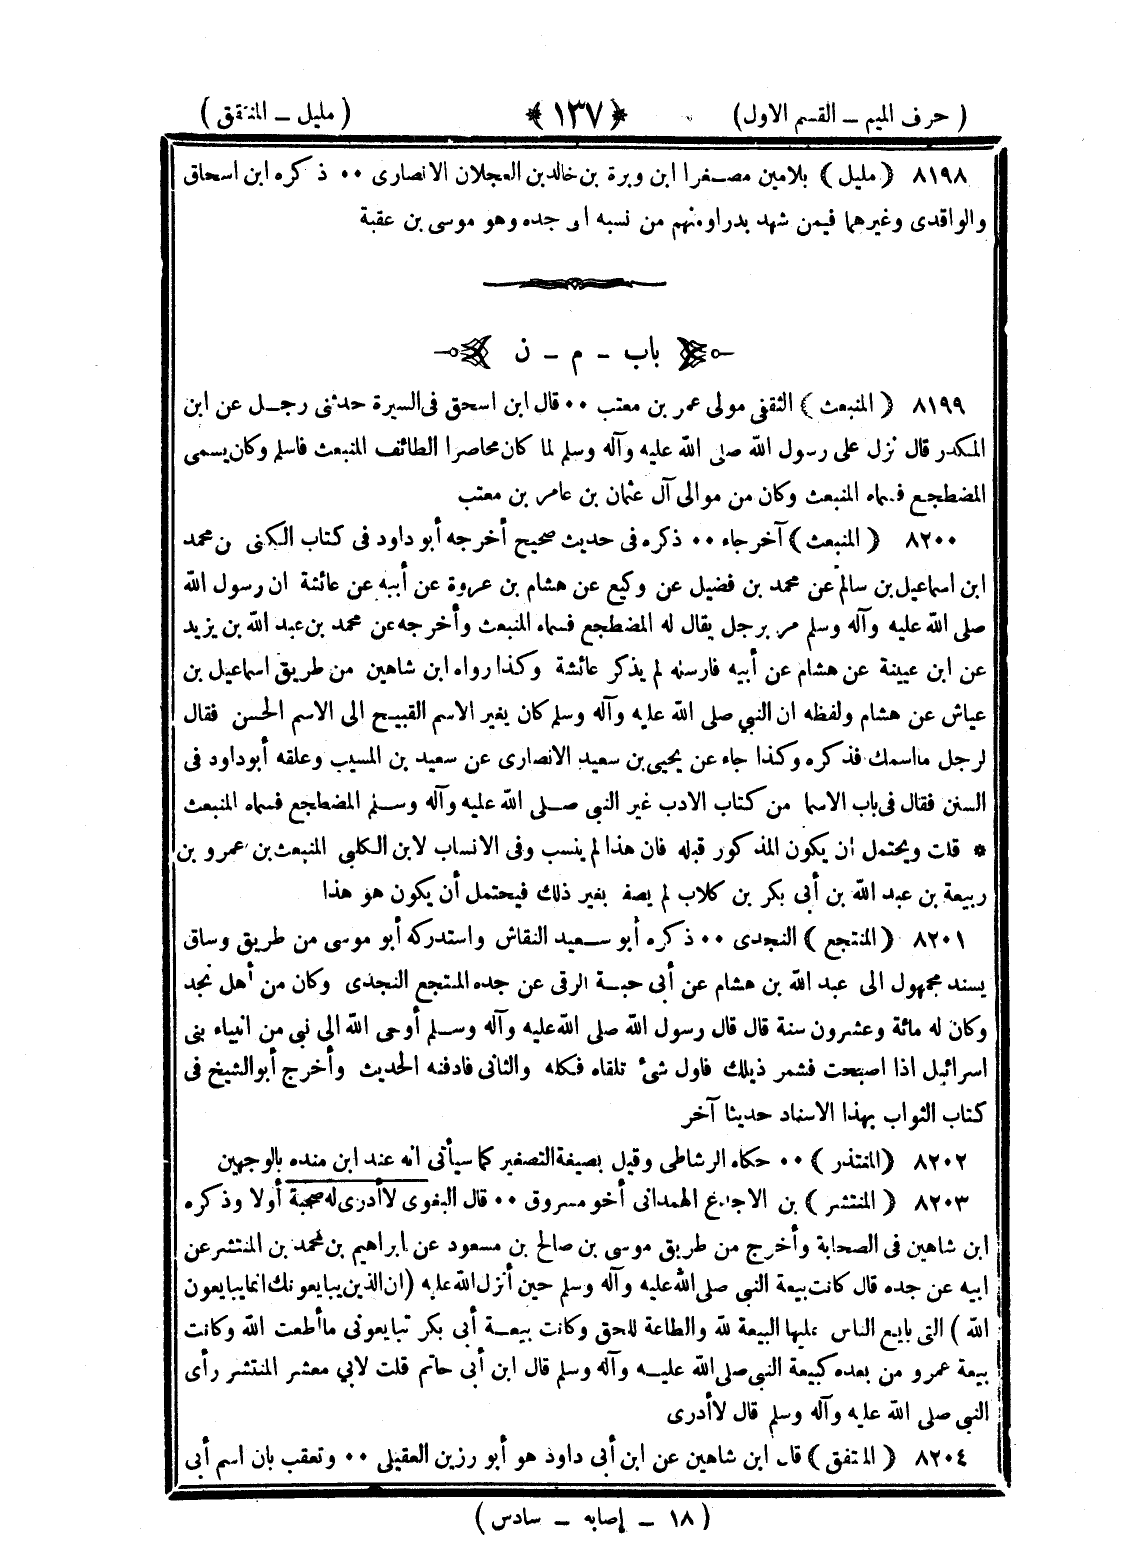 ( حرف الميم ــ القسم الاول) ﴿ ١٣٧ ﴾ ( مليل ــ المنتفق )
٨١٩٨ ( مليل ) بلامين مصغرا ابن وبرة بن خالد بن العجلان الانصارى ٠٠ ذكره ابن اسحاق
والواقدى وغيرهما فيمن شهد بدراومنهم من نسبه الى جده وهو موسى بن عقبة
باب ــ م ــ ن
٨١٩٩ ( المنبعث ) الثقفى مولى عمر بن معتب ٠٠ قال ابن اسحق فى السيرة حدثنى رجل عن ابن
المكدر قال نزل على رسول الله صلى الله عليه وآله وسلم لما كان محاصرا الطائف المنبعث فاسلم وكان يسمى
المضطجع فسماه المنبعث وكان من موالى آل عثمان بن عامر بن معتب
٨٢٠٠ ( المنبعث ) آخر جاء ٠٠ ذكره فى حديث صحيح أخرجه أبو داود فى كتاب الكنى ن محمد
ابن اسماعيل بن سالم عن محمد بن فضيل عن وكيع عن هشام بن عروة عن أبيه عن عائشة ان رسول الله
صلى الله عليه وآله وسلم مر برجل يقال له المضطجع فسماه المنبعث وأخرجه عن محمد بن عبد الله بن يزيد
عن ابن عيينة عن هشام عن أبيه فارسله لم يذكر عائشة وكذا رواه ابن شاهين من طريق اسماعيل بن
عياش عن هشام ولفظه ان النبي صلى الله عليه وآله وسلم كان يغير الاسم القبيح الى الاسم الحسن فقال
لرجل مااسمك فذكره وكذا جاء عن يحيى بن سعيد الانصارى عن سعيد بن المسيب وعلقه أبوداود فى
السنن فقال فى باب الاسما من كتاب الادب غير النبى صلى الله عليه وآله وسلم المضطجع فسماه المنبعث
* قلت ويحتمل أن يكون المذكور قبله فان هذا لم ينسب وفى الانساب لابن الكلبي المنبعث بن عمرو بن
ربيعة بن عبد الله بن أبى بكر بن كلاب لم يصفه بغير ذلك فيحتمل أن يكون هو هذا
٨٢٠١ ( المنتجع ) النجدى ٠٠ ذكره أبو سعيد النقاش واستدركه أبو موسى من طريق وساق
بسند مجهول الى عبد الله بن هشام عن أبى حبة الرقى عن جده المنتجع النجدى وكان من أهل نجد
وكان له مائة وعشرون سنة قال قال رسول الله صلى الله عليه وآله وسلم أوحى الله الى نبى من انبياء بنى
اسرائيل اذا اصبحت فشمر ذيلك فاول شىء تلقاه فكله والثانى فادفنه الحديث وأخرج أبوالشيخ فى
كتاب الثواب بهذا الاسناد حديثا آخر
٨٢٠٢ (المنتذر ) ٠٠ حكاه الرشاطى وقيل بصيغة التصغير كما سيأتى انه عند ابن منده بالوجهين
٨٢٠٣ ( المنتشر ) بن الاجدع الهمدانى أخو مسروق ٠٠ قال البغوى لاأدرى له صحبة أولا وذكره
ابن شاهين فى الصحابة وأخرج من طريق موسى بن صالح بن مسعود عن ابراهيم بن محمد بن المنتشر عن
ابيه عن جده قال كانت بيعة النبى صلى الله عليه وآله وسلم حين أنزل الله عليه (ان الذين يبايعونك انما يبايعون
الله ) التى بايع الناس عليها البيعة لله والطاعة للحق وكانت بيعة أبى بكر تبايعونى ماأطعت الله وكانت
بيعة عمرو من بعده كبيعة النبى صلى الله عليه وآله وسلم قال ابن أبى حاتم قلت لابي معشر المنتشر رأى
النبى صلى الله عليه وآله وسلم قال لاأدرى
٨٢٠٤ ( المتفق ) قال ابن شاهين عن ابن أبى داود هو أبو رزين العقيلى ٠٠ وتعقب بان اسم أبى
( ١٨ ــ إصابه ــ سادس )